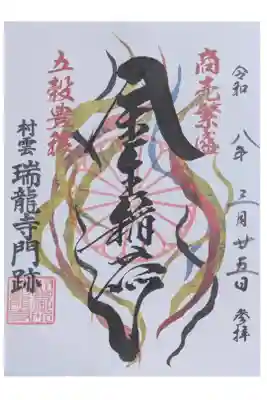 令和八年三月廿五日 参拝
商売繁盛
稲荷
五穀豊穣
村雲 瑞龍寺門跡